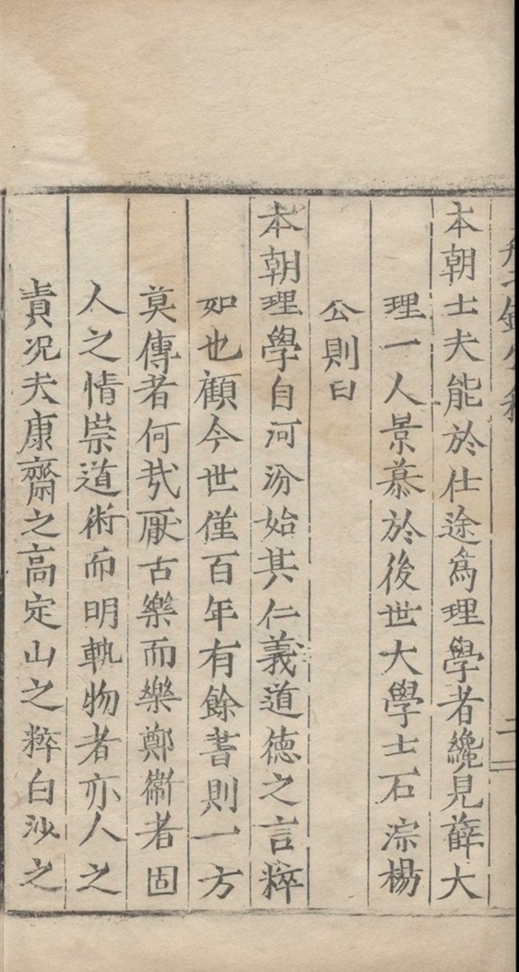 本朝士夫能於仕途爲理學者纔見薛大
理一人景慕於後世大學士石淙楊
公則曰
本朝理學自河汾始其仁義道德之言粹
如也顧今世僅百年有餘書則一方
莫傳者何哉厭古樂而樂鄭衞者固
人之情崇道術而明軌物者亦人之
責况夫康齋之高定山之粹白沙之